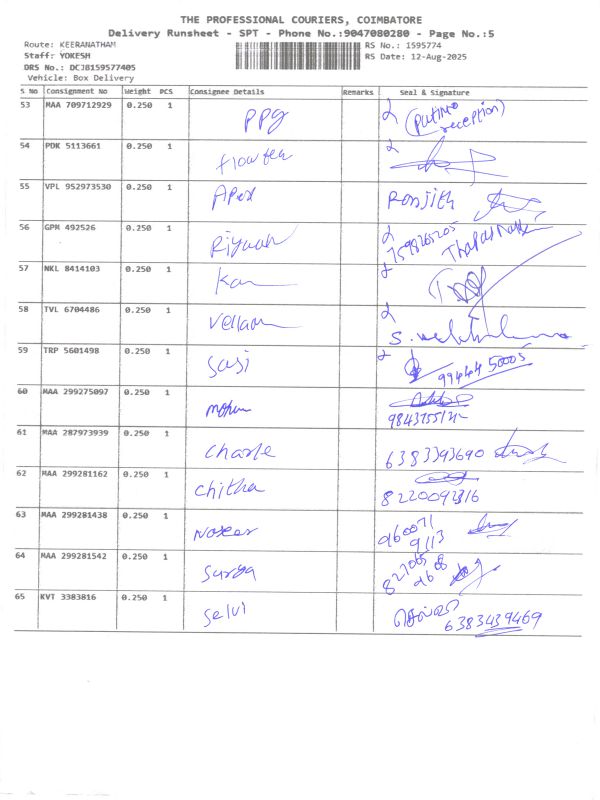 THE PROFESSIONAL COURIERS, COIMBATORE
Delivery Runsheet - SPT - Phone No.:9047080280 - Page No.:5
Route: KEERANATHAM
RS No.: 1595774
Staff: YOKESH
RS Date: 12-Aug-2025
DRS No.: DCJB159577405
Vehicle: Box Delivery
S No Consignment No Weight PCS Consignee Details Remarks Seal & Signature
53 MAA 709712929 0.250 1 PPG reception)
54 PDK 5113661 0.250 1
55 VPL 952973530 0.250 1 Apex Ronjith
56 GPM 492526 0.250 1 7598265205
57 NKL 8414103 0.250 1
58 TVL 6704486 0.250 1
59 TRP 5601498 0.250 1 Sasi 99444 50005
60 MAA 299275097 0.250 1 mohan
61 MAA 287973939 0.250 1 Charle 6383393690
62 MAA 299281162 0.250 1 Chitha
63 MAA 299281438 0.250 1 960071
9113
64 MAA 299281542 0.250 1 Surya
65 KVT 3383816 0.250 1 Selvi
6383439469